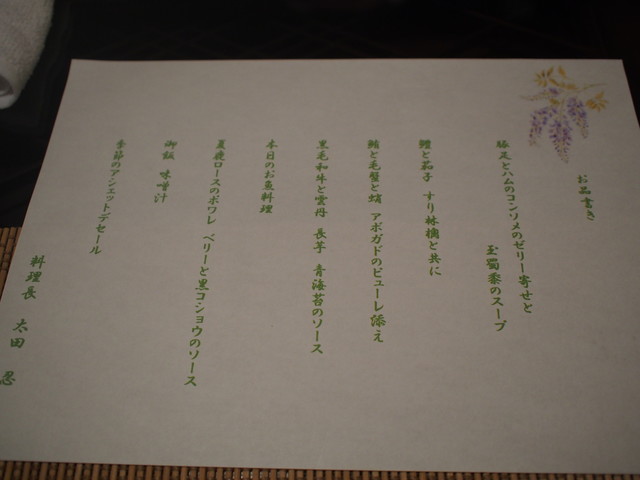 お品書き
豚足とハムのコンソメのゼリー寄せと
玉蜀黍のスープ
鰹と茄子　すり林檎と共に
鮪と毛蟹と蛸　アボガドのピューレ添え
黒毛和牛と雲丹　長芋　青海苔のソース
本日のお魚料理
夏鹿ロースのポワレ　ベリーと黒コショウのソース
御飯　味噌汁
季節のアシェットデセール
料理長　太田　忍